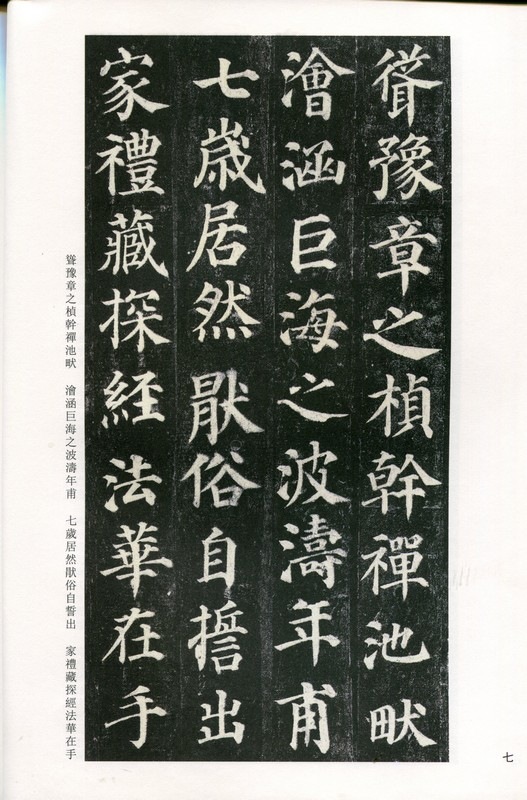 聳豫章之楨幹禪池畎
澮涵巨海之波濤年甫
七歳居然猒俗自誓出
家禮藏探經法華在手
聳豫章之楨幹禪池畎 澮涵巨海之波濤年甫 七歳居然猒俗自誓出 家禮藏探經法華在手
七